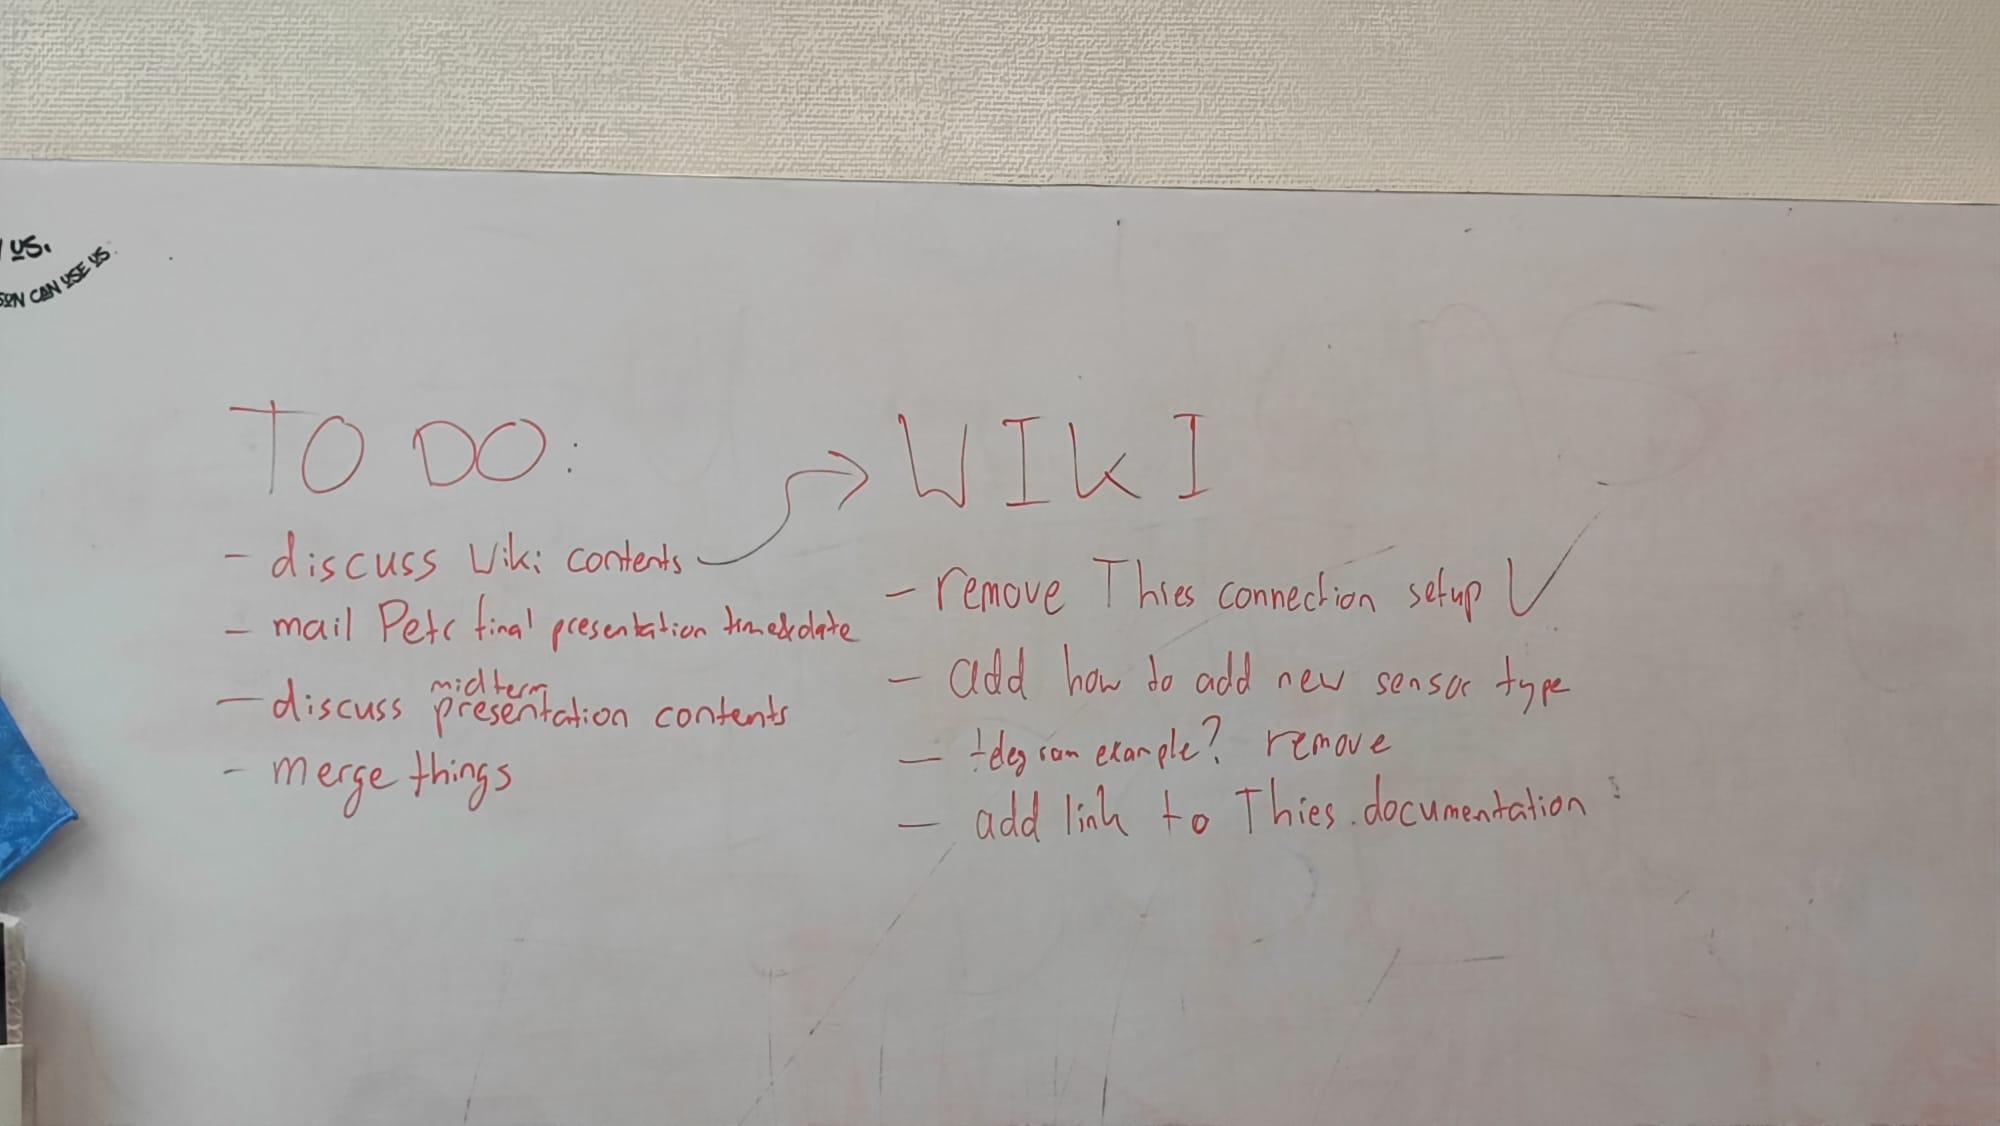 US.
CAN USE US
TO DO:
- discuss Wiki contents
- mail Petr final presentation time&date
- discuss midterm presentation contents
- merge things
WIKI
- remove Thies connection setup
- add how to add new sensor type
- telegram example? remove
- add link to Thies documentation